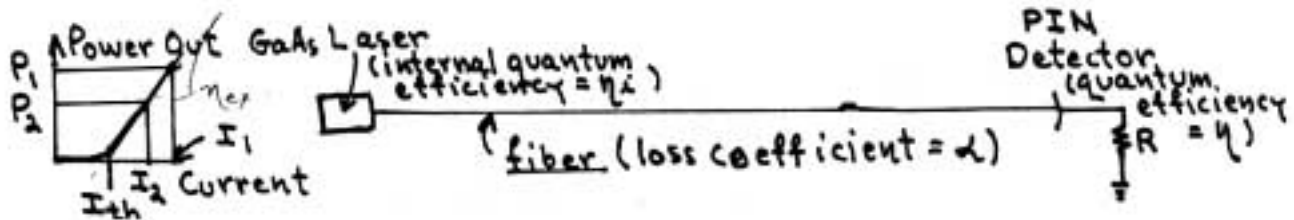 Power Out
P₁
P₂
ηex
I₁
I₂
Current
Ith
GaAs Laser
(internal quantum
efficiency = ηi)
fiber (loss coefficient = α)
PIN
Detector
(quantum
efficiency
= η)
R